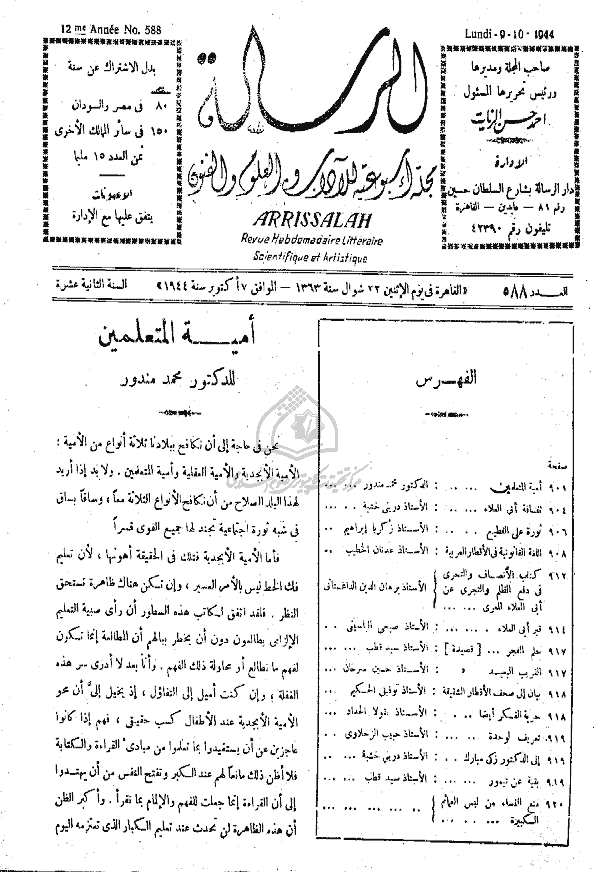 12me Année No. 588
بدل الاشتراك عن سنة
٨٠ في مصر والسودان
١٥٠ في سائر الممالك الأخرى
ثمن العدد ١٥ مليما
الاعلانات
يتفق عليها مع الإدارة
الرسالة
مجلة أسبوعية للآداب والعلوم والفنون
ARRISSALAH
Revue Hebdomadaire Litteraire
Scientifique et Artistique
Lundi - 9 - 10 - 1944
صاحب المجلة ومديرها
ورئيس تحريرها المسئول
احمد حسن الزيات
الادارة
دار الرسالة بشارع السلطان حسين
رقم ٨١ — عابدين — القاهرة
تليفون رقم ٤٢٣٩٠
العدد ٥٨٨
« القاهرة في يوم الاثنين ٢٢ شوال سنة ١٣٦٣ — الموافق ٧ أكتوبر سنة ١٩٤٤ »
السنة الثانية عشرة
الفهرس
صفحة
٩٠١ أمية المتعلمين ... ... : الدكتور محمد مندور ... ...
٩٠٤ ثقافة أبي العلاء ... ... : الأستاذ دريني خشبة ...
٩٠٦ ثورة على القطيع ... ... : الأستاذ زكريا إبراهيم ...
٩٠٨ اللغة القانونية في الأقطار العربية : الأستاذ عدنان الخطيب ...
٩١٢ كتاب الانصاف والتحرى في دفع الظلم والتجرى عن أبي العلاء المعرى ... : الأستاذ برهان الدين الداغستانى
٩١٤ قبر أبي العلاء ... ... : الأستاذ صبحى الياسينى ...
٩١٧ حلم الفجر ... [ قصيدة ] : الأستاذ سيد قطب ...
٩١٧ الغريب البعيد » : الأستاذ حسين سرحان ...
٩١٨ بيان إلى صحف الأقطار الشقيقة : الأستاذ توفيق الحكيم ...
٩١٨ حرية الفكر أيضا ... : الأستاذ نقولا الحداد ...
٩١٩ تعريف لوحدة ... : الأستاذ حبيب الزحلاوى ...
٩١٩ إلى الدكتور زكى مبارك ... : الأستاذ دريني خشبة ...
٩١٩ بقية عن تيمور ... : الأستاذ سيد قطب ...
٩٢٠ منع النساء من لبس العمائم الكبيرة ...
أميـــة المتعلمين
للدكتور محمد مندور
نحن في حاجة إلى أن نكافح ببلادنا ثلاثة أنواع من الأمية :
الأمية الأبجدية والأمية العقلية وأمية المتعلمين . ولا بد إذا أريد
لهذا البلد الصلاح من أن نكافح الأنواع الثلاثة معاً ، وسافاً بساق
في شبه ثورة اجتماعية تجند لها جميع القوى قسراً
فأما الأمية الأبجدية فتلك في الحقيقة أهونها ، لأن تعليم
فك الخط ليس بالأمر العسير ، وإن تكن هناك ظاهرة تستحق
النظر . فلقد اتفق لكاتب هذه السطور أن رأى صبية التعليم
الإلزامى يطالعون دون أن يخطر ببالهم أن المطالعة إنما تكون
لفهم ما نطالع أو محاولة ذلك الفهم . وأنا بعد لا أدرى سر هذه
الغفلة ؛ وإن كنت أميل إلى التفاؤل ، إذ يخيل إلىَّ أن محو
الأمية الأبجدية عند الأطفال كسب حقيقى ، فهم إذا كانوا
عاجزين عن أن يستفيدوا بما تعلموا من مبادئ القراءة والكتابة
فلا أظن ذلك مانعاً لهم عند الكبر وتفتح النفس من أن يهتدوا
إلى أن القراءة إنما جعلت للفهم والإلمام بما نقرأ . وأكبر الظن
أن هذه الظاهرة لن تحدث عند تعليم الكبار الذى تعتزمه اليوم